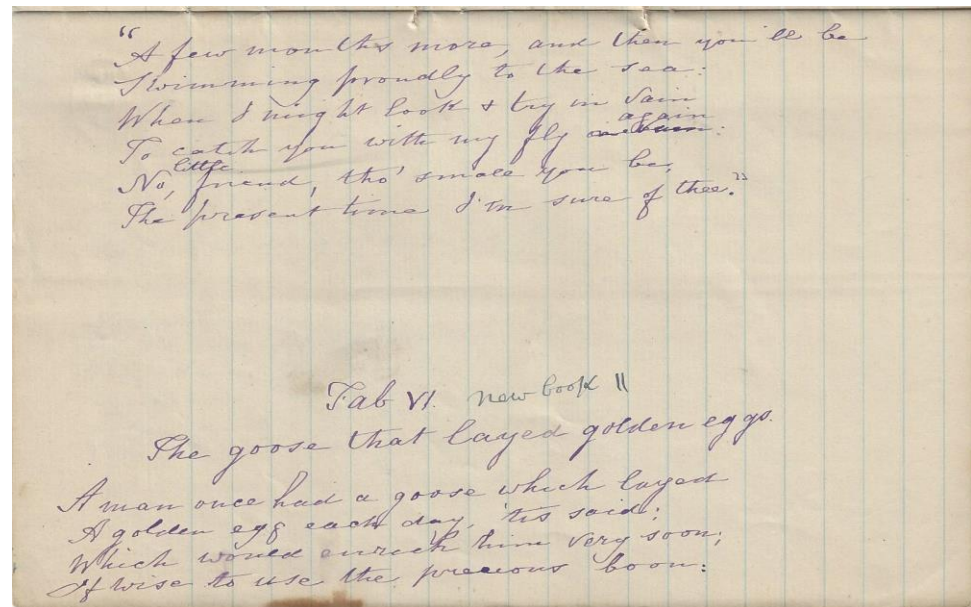 "A few months more, and then you'll be
Swimming proudly to the sea:
When I might look & try in vain
To catch you with my fly again:
No, little friend, tho' small you be,
The present time I'm sure of thee."
Fab VI. new book 11
The goose that layed golden eggs.
A man once had a goose which layed
A golden egg each day, 'tis said;
Which would enrich him very soon;
If wise to use the precious boon: